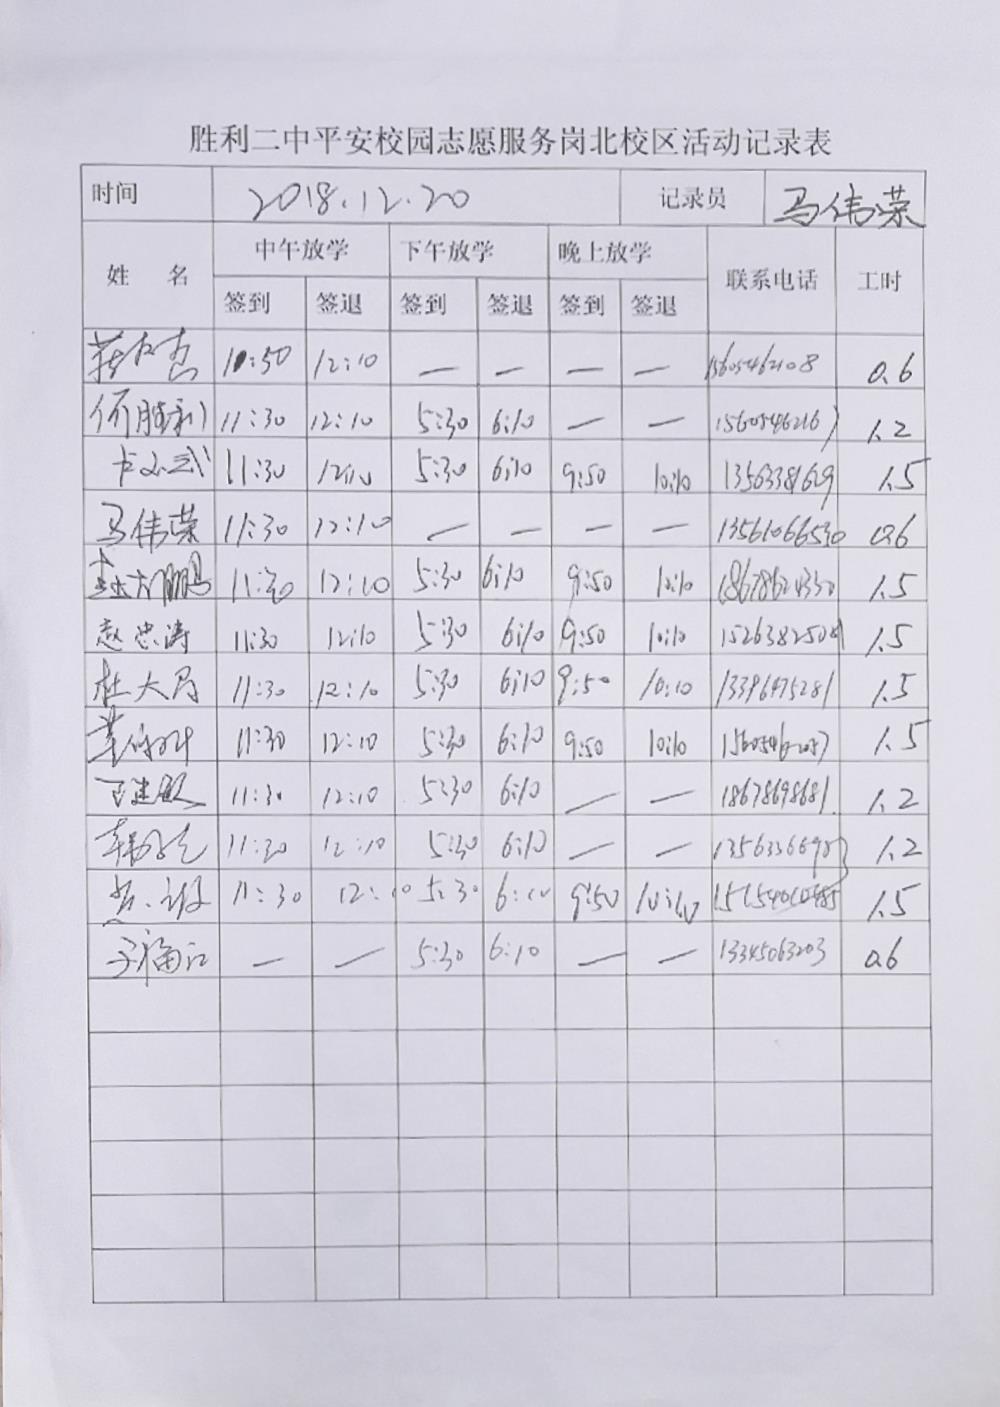 胜利二中平安校园志愿服务岗北校区活动记录表
时间 2018.12.20 记录员 马伟荣
姓 名 中午放学 下午放学 晚上放学 联系电话 工时
签到 签退 签到 签退 签到 签退
12:10 — — — — 15605462108 0.6
何胜利 11:30 12:10 5:30 6:10 — — 1.2
11:30 12:10 5:30 6:10 9:50 10:10 1.5
马伟荣 11:30 12:10 — — — — 13561066530 0.6
11:30 12:10 5:30 6:10 9:50 10:10 18678624330 1.5
赵忠涛 11:30 12:10 5:30 6:10 9:50 10:10 1.5
杜大局 11:30 12:10 5:30 6:10 9:50 10:10 13396475281 1.5
11:30 12:10 5:30 6:10 9:50 10:10 1.5
11:30 12:10 5:30 6:10 — — 18678698681 1.2
11:30 12:10 5:30 6:10 — — 1.2
11:30 12:10 5:30 6:10 9:50 10:10 1.5
— — 5:30 6:10 — — 13345063203 0.6